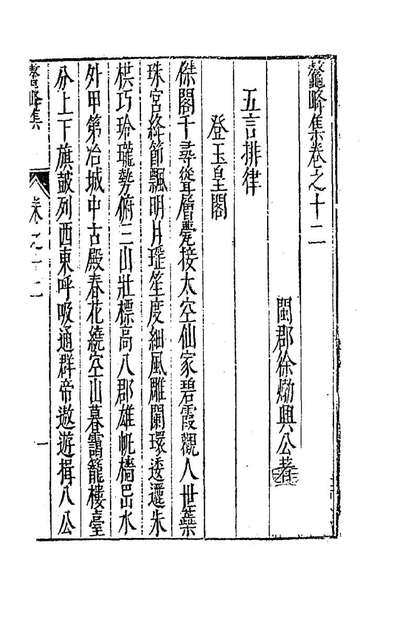 鼇峰集卷之十二
閩郡徐𤊹興公著
五言排律
登玉皇閣
傑閣千尋聳層甍接太空仙家碧霞觀人世蘂
珠宮絳節飄明月瑤笙度細風雕闌環逶邐朱
栱巧玲瓏勢俯三山壯標高八郡雄帆檣邑水
外甲第冶城中古殿春花繞空山暮靄籠樓臺
分上下旗皷列西東呼吸通群帝遨遊揖八公
鼇峰集
卷之十二
一